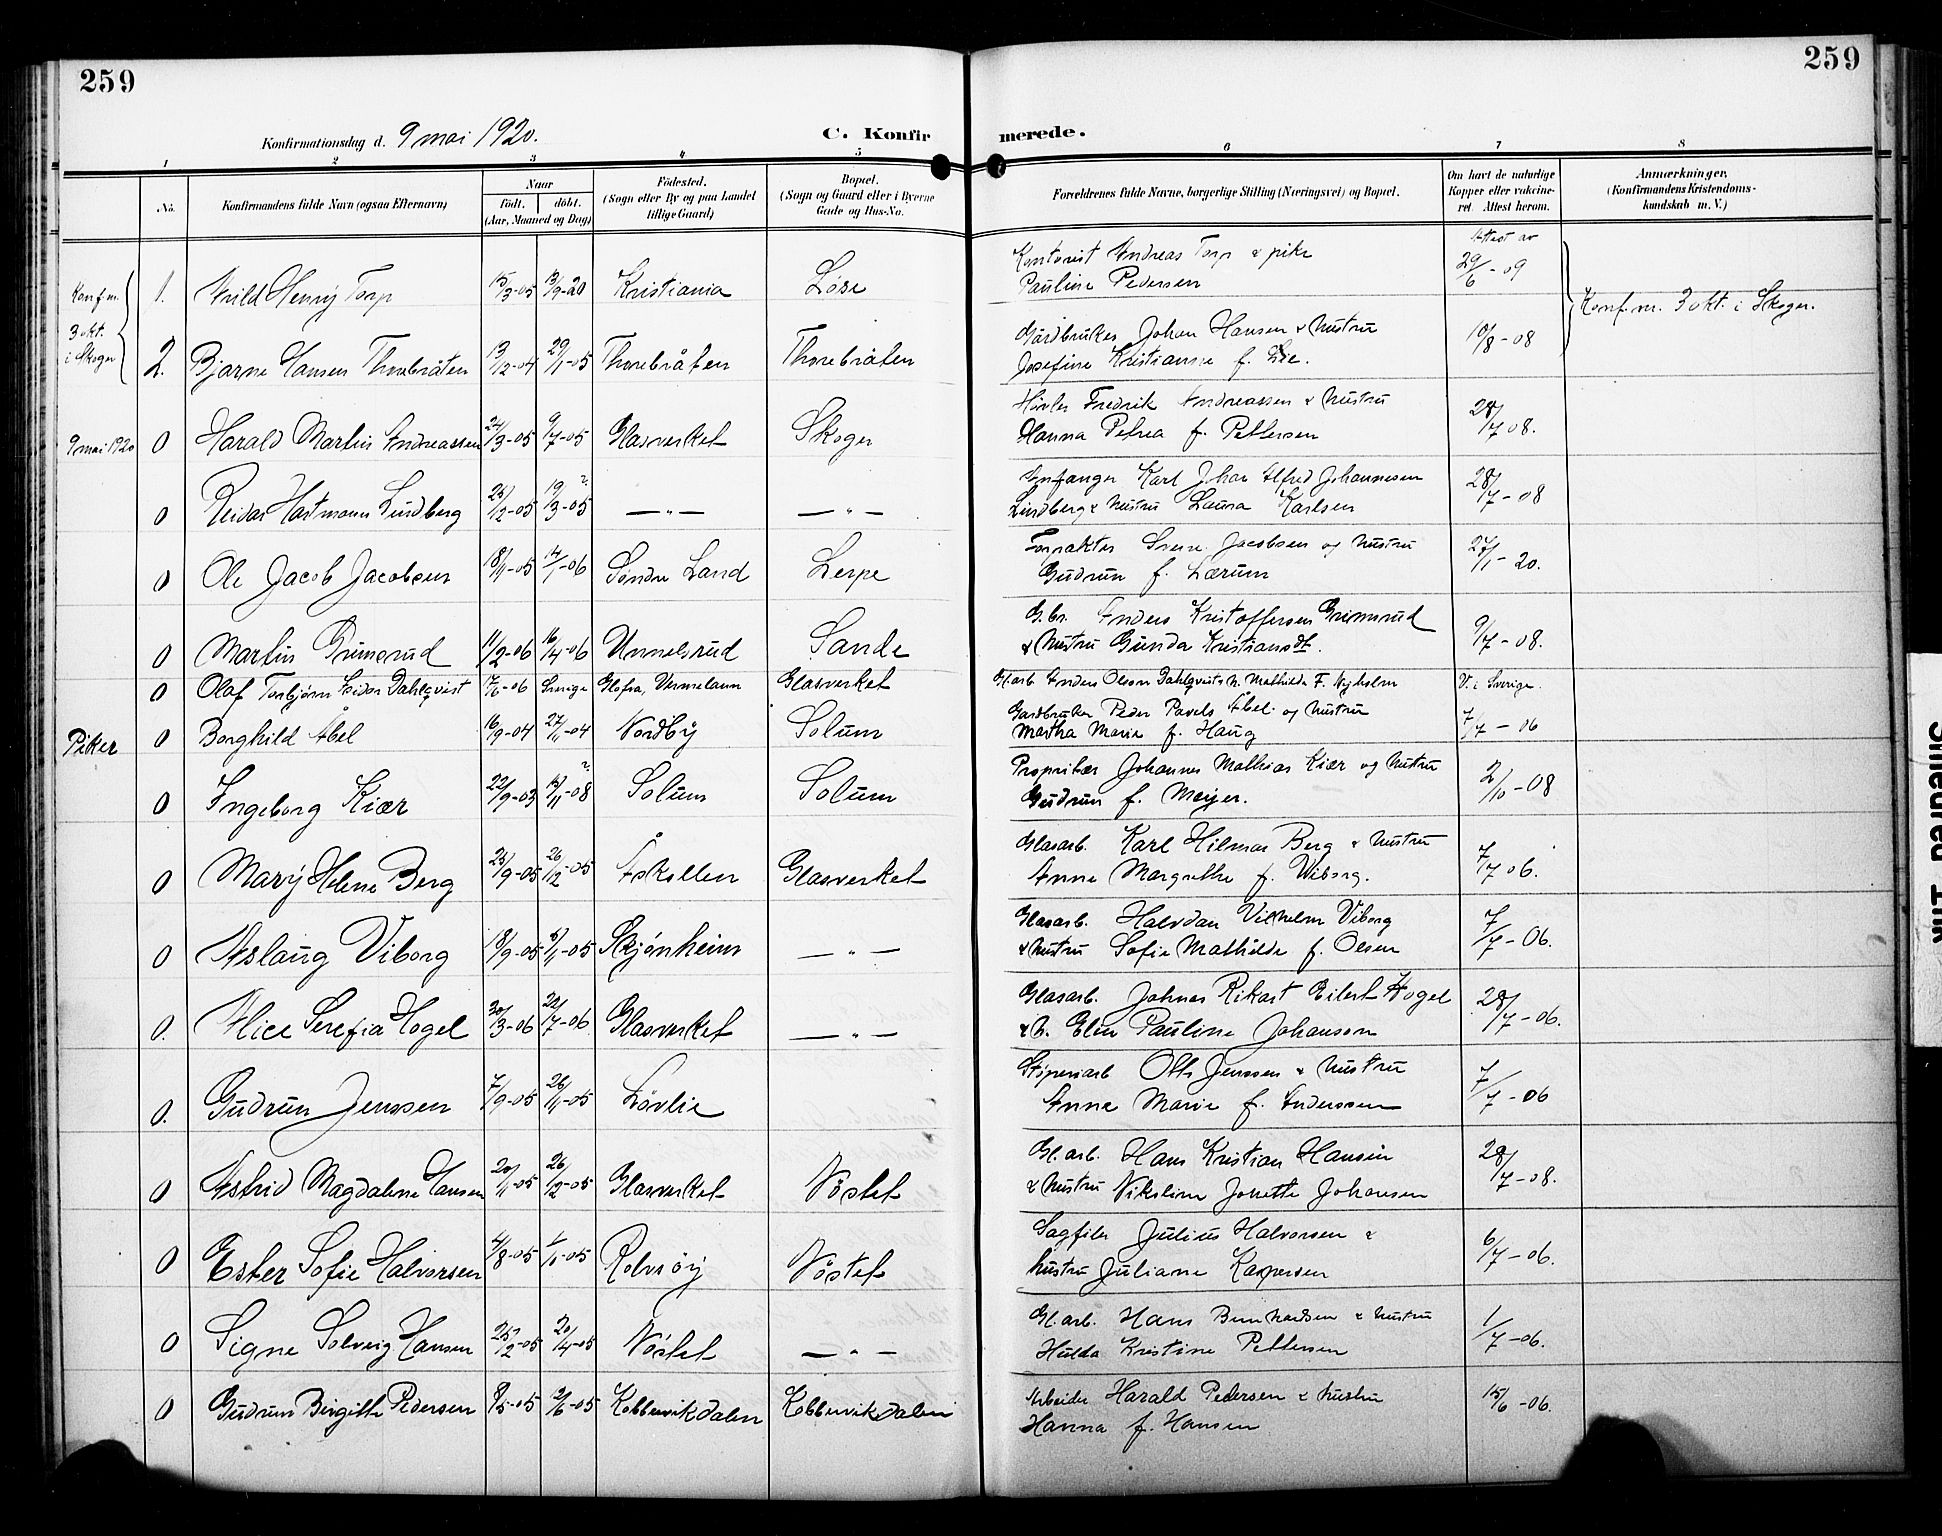 259
259
Konfirmationsdag d. 9 mai 1920.
C. Konfirmerede.
1 2 3 4 5 6 7 8
No.
Konfirmandens fulde Navn (ogsaa Efternavn)
Naar
födt. döbt.
(Aar, Maaned og Dag)
Födested.
(Sogn eller By og paa Landet
tillige Gaard)
Bopæl.
(Sogn og Gaard eller i Byerne
Gade og Hus-No.
Forældrenes fulde Navne, borgerlige Stilling (Næringsvei) og Bopæl.
Om havt de naturlige
Kopper eller vakcine-
ret. Attest herom.
Anmærkninger,
(Konfirmandens Kristendoms-
kundskab m. V.)
Konf.m.
3 okt.
i Skoger
1. Arild Henry Torp 15/3-05 19/9-20 Kristiania Löse
Kontorist Andreas Torp & pike
Pauline Pedersen
Attest av
29/6-09
Konf.m. 3 okt. i Skoger.
2. Bjarne Hansen Thorebråten 13/12-04 29/1-05 Thorebråten Thorebråten
Gårdbruker Johan Hansen & hustru
Josefine Kristianse f. Lie.
10/8-08
9 mai 1920
0 Harald Martin Andreassen 24/3-05 9/7-05 Glasverket Skoger
Høvler Fredrik Andreassen & hustru
Hanna Petrea f. Pettersen
28/7 08.
0 Reidar Hartmann Lindberg 25/12-05 19/3-05 ? — " — — " —
Karl Johan Alfred Johannesen
Lindberg & hustru Laura Karlsen
28/7-08
0 Ole Jacob Jacobsen 18/11-05 14/1-06 Søndre Land Lerpe
Forpakter Jacobsen og hustru
Gudrun f. Lærum
27/1-20.
0 Martin Grimsrud 11/2-06 16/4-06 Unnelsrud Sande
G.br. Anders Kristoffersen Grimsrud
& hustru Gunda Kristiansdt.
9/7-08.
0 Olaf Torbjørn Dahlqvist 7/6-06 Sverige Glafva, Vermeland Glasverket
Gl.arb. Anders Olsson Dahlqvist & h. Mathilda F. Nyholm
V. i Sverige.
Piker
0 Borghild Åbel 16/9-04 27/11-04 Nordby Solum
Gardbruker Peder Pavels Åbel og hustru
Martha Marie f. Haug
7/7-06
0 Ingeborg Kiær 22/9-03 ?/11-08 Solum Solum
Proprietær Johannes Mathias Kiær og hustru
Gudrun f. Meyer.
2/10-08
0 Mary Helene Berg 25/9-05 26/12-05 Åskollen Glasverket
Glasarb. Karl Hilmar Berg & hustru
Anne Margrethe f. Wiborg.
7/7 06.
0 Aslaug Viborg 18/9-05 5/11-05 Skjönheim — " —
Glasarb. Halvdan Vilhelm Viborg
& hustru Sofie Mathilde f. Olsen
7/7-06.
0. Alice Serefia Hogel 30/3-06 22/7-06 Glasverket — " —
Glasarb. Johnas Rikart Eilert Hogel
& h. Elin Pauline Johanson
28/7-06.
0. Gudrun Jenssen 7/9-05 26/11-05 Lövlie
Støperiarb Otto Jenssen & hustru
Anne Marie f. Anderssen
7/7-06
0 Astrid Magdalene Hansen 20/11-05 26/12-05 Glasverket Nöstet
Gl.arb. Hans Kristian Hansen
& hustru Nikoline Jonette Johansen
28/7-08.
0 Ester Sofie Halvorsen 4/8-05 1/11-05 Rolvsöy Nöstet
Sagfiler Julius Halvorsen &
hustru Juliane Kaspersen
6/7-06.
0 Signe Solveig Hansen 25/2-05 20/4-05 Nöstet — " —
Gl.arb. Hans Bernhardsen & hustru
Hulda Kristine Pettersen
1/7-06.
0 Gudrun Birgitte Pedersen 8/5-05 2/6-05 Kobbervikdalen Kobbervikdalen
Arbeider Harald Pedersen & hustru
Hanna f. Hansen
15/6-06.